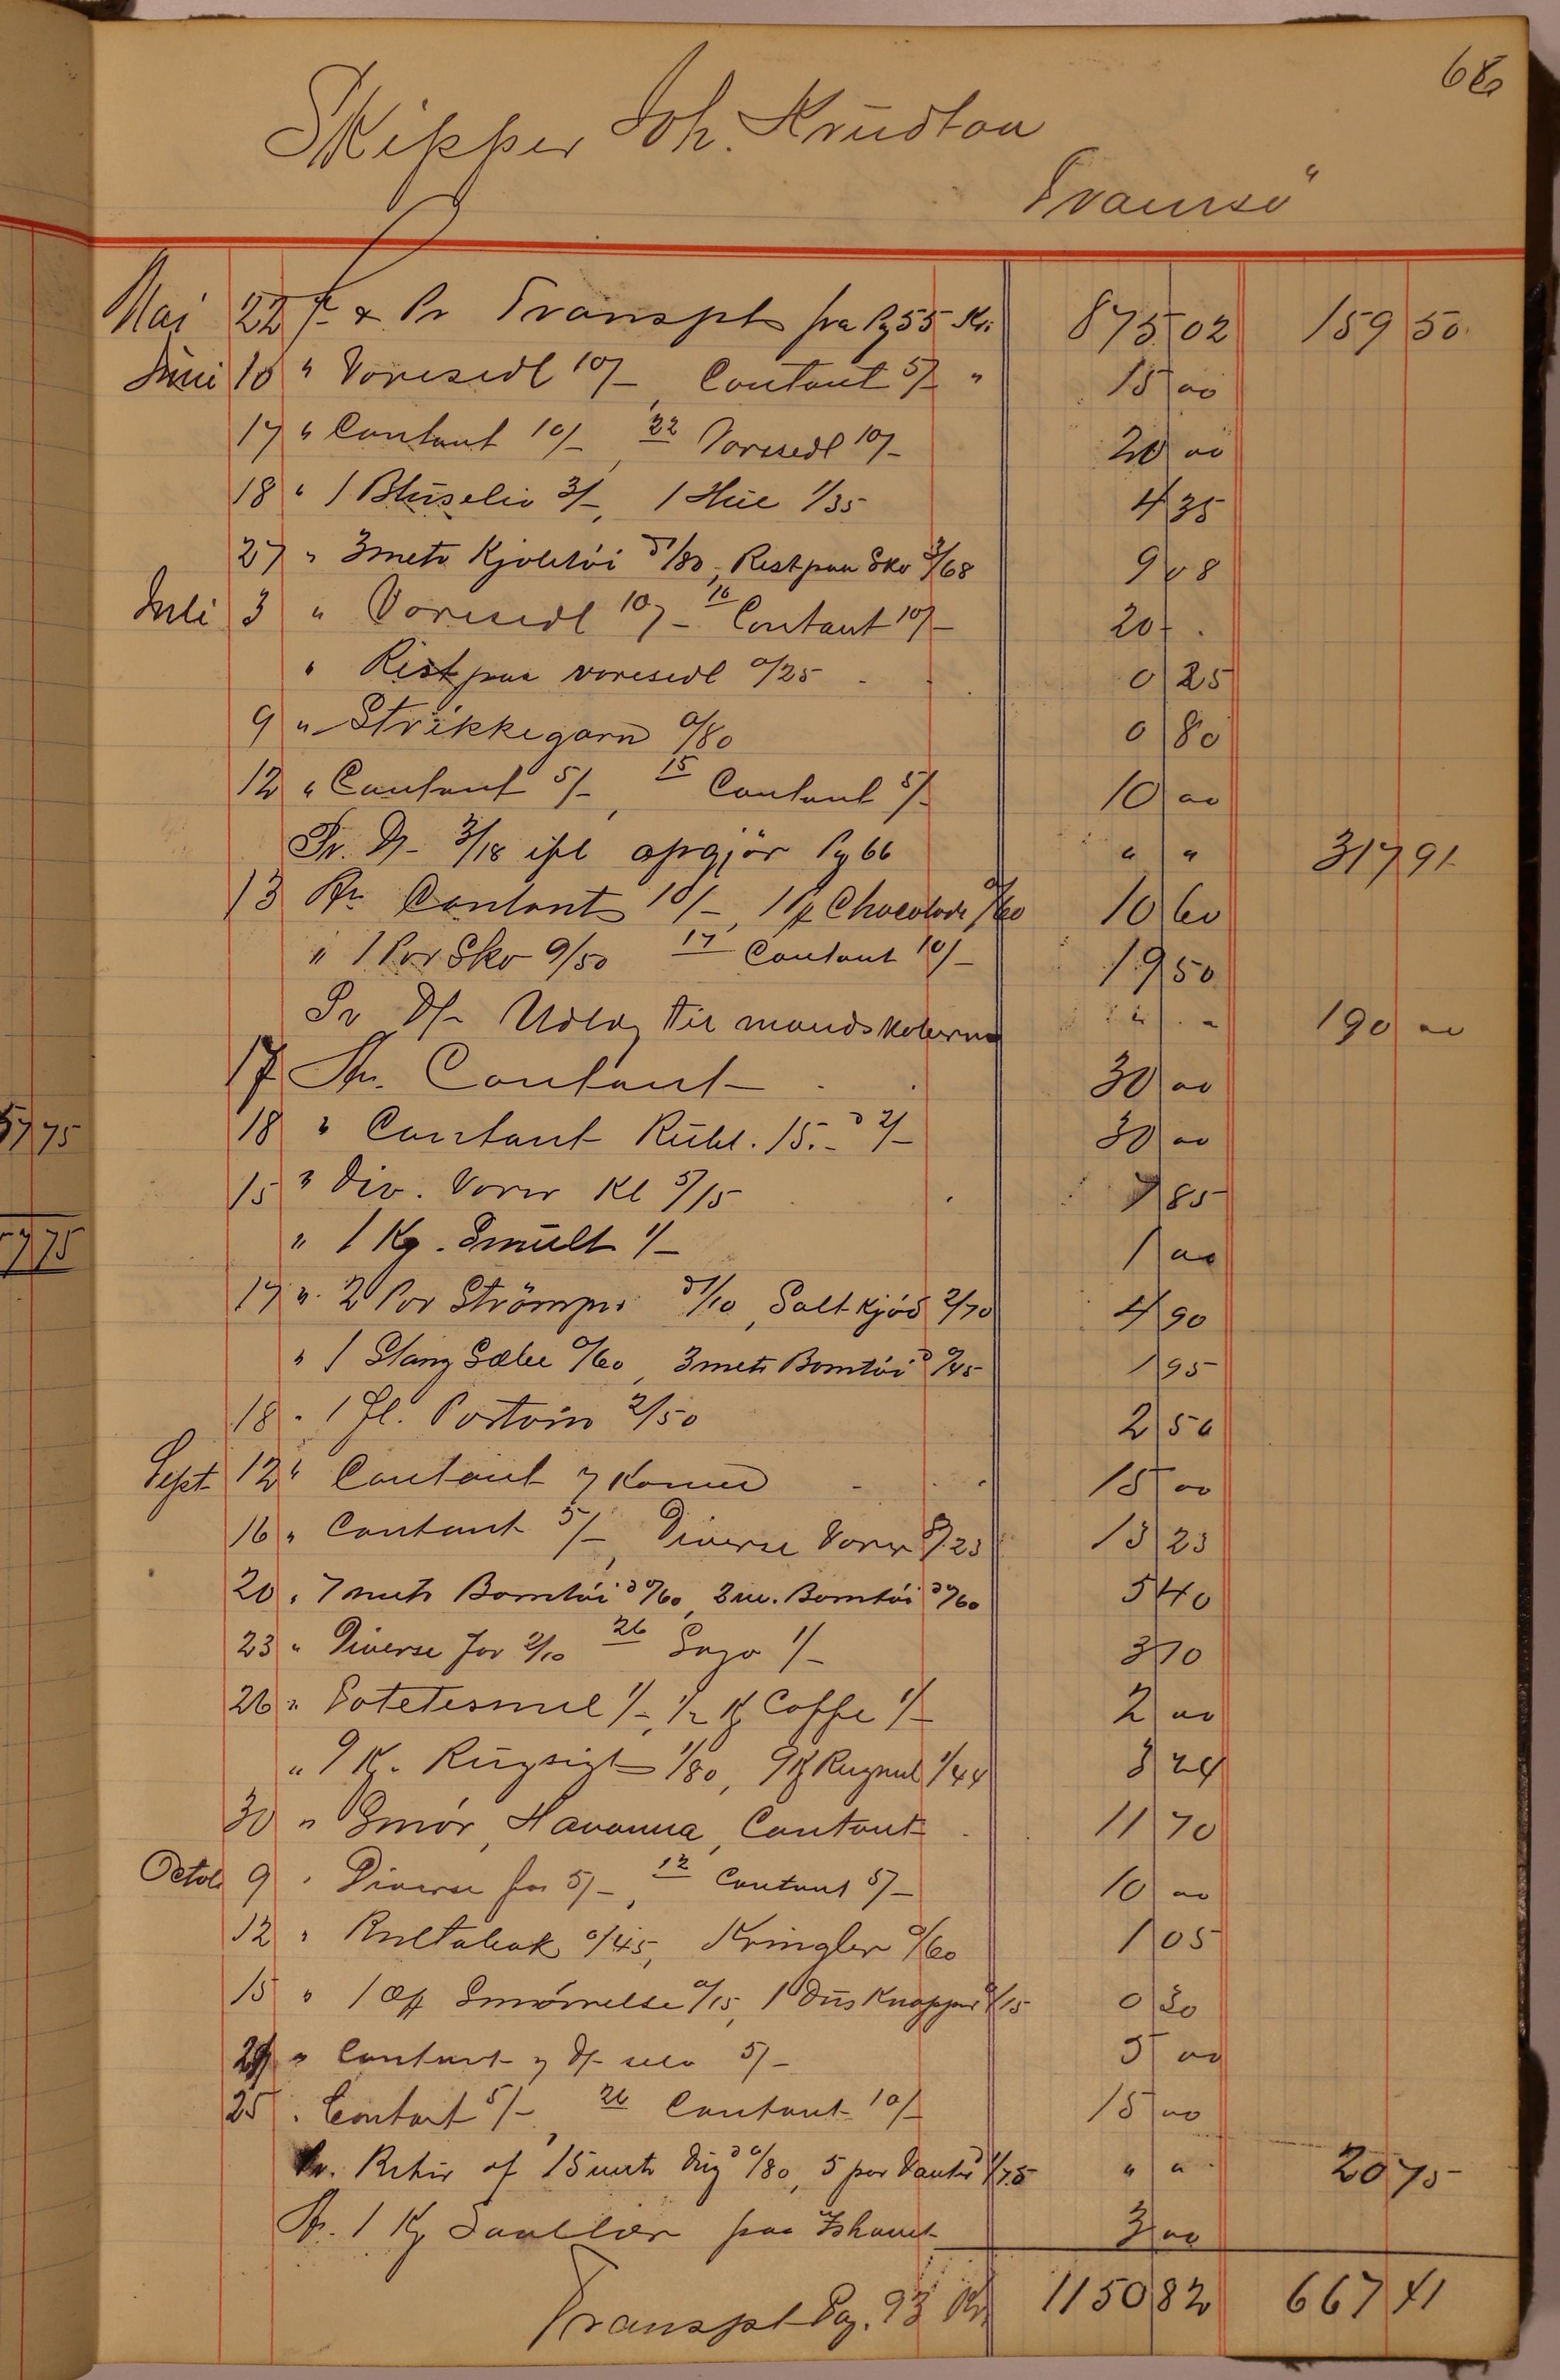 68
Skipper Joh. Krüdtaa
Tromsø"
Mai 22 F & Pr Transpt fra Pg 55 Kr: 875 02 159 50
Juni 10 " Varesedl 10/-, Contant 5/- " 15 00
17 " Contant 10/-, 22 Varesedl 10/- 20 00
18 " 1 Bluseliv 3/-, 1 Hue 1/35 4 35
27 " 3 metr Kjoletöi à 1/80, Rest paa Sko 3/68 9 08
Juli 3 " Varesedl 10/- 16 Contant 10/- 20 - .
" Rest paa varesedl 0/25 0 25
9 " Strikkegarn 0/80 0 80
12 " Contant 5/-, 15 Contant 5/- 10 00
Pr. D/- 3/18 ifl opgjör Pg 66 " " 317 91
13 An Contant 10/-, 1 Pk Chocolade 0/60 10 60
" 1 Par Sko 9/50 17 Contant 10/- 19 50
Pr D/- Udlæg til mandskaberne " " 190 00
17 An. Contant 30 00
18 " Contant Rubl. 15.- à 2/- 30 00
15 " Div. Varer Kl 5/15 7 85
" 1 Kg. Smult 1/- 1 00
17 " 2 Par Strömper à 1/10, Salt kjöd 2/70 4 90
" 1 Stang Sæbe 0/60, 3 metr Bomtöi à 0/45 1 95
18 " 1 Fl. Portvin 2/50 2 50
Sept 12 " Contant Konen 15 00
16 " Contant 5/-, Diverse Varer 8/23 13 23
20 " 7 metr Bomtöi à 0/60, 2 m. Bomtöi à 0/60 5 40
23 " Diverse for 2/10 26 Sago 1/- 3 10
26 " Potetesmel 1/-, 1/2 Kg Caffe 1/- 2 00
" 9 Kg. Rugsigt 1/80, 9 Kg Rugmel 1/44 3 24
30 " Smör, Havanna, Contant 11 70
Octob 9 " Diverse for 5/-, 12 Contant 5/- 10 00
12 " Rultabak 0/45, Kringler 0/60 1 05
15 " 1 Æsk Smörrelse 0/15, 1 Dus Knapper 0/15 0 30
29 " Contant D/- selv 5/- 5 00
25 " Contant 5/-, 26 Contant 10/- 15 00
Pr. Retur af 15 metr à 0/80, 5 par Vanter à 1/75 " " 20 75
An. 1 Kg Saallær paa Ishavet 3 00
Transpt Pag. 93 Kr. 1150 82 667 41
57 75
57 75